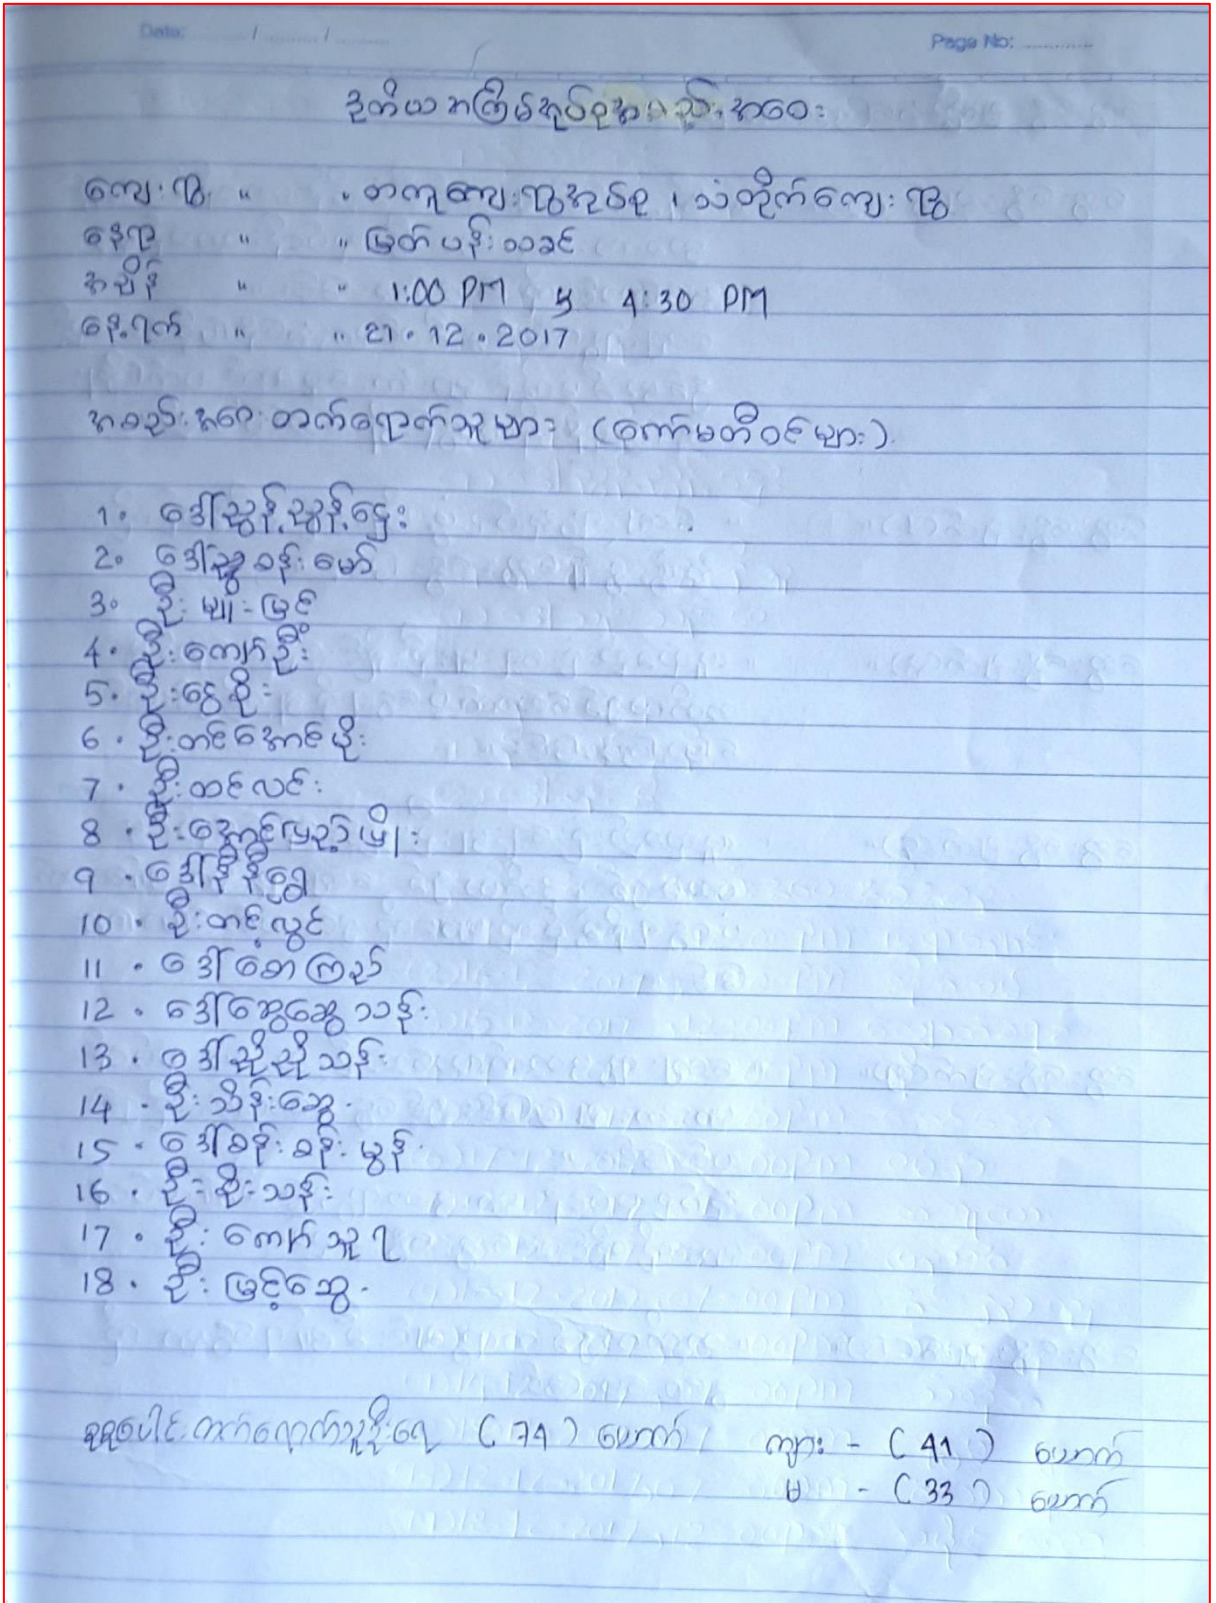 Date: ......... / ......... / .........
Page No: ............
ဒုတိယအကြိမ်အုပ်စုအစည်းအဝေး
ကျေးရွာ " " တကူကျေးရွာအုပ်စု ၊ သံတိုက်ကျေးရွာ
နေရာ " " မြတ်ပန်းသခင်
အချိန် " " 1:00 PM မှ 4:30 PM
နေ့ရက် " " 21.12.2017
အစည်းအဝေးတက်ရောက်သူများ (ကော်မတီဝင်များ)
1. ဒေါ်ညွန့်ညွန့်ဌေး
2. ဒေါ်ညွှန်းမော်
3. ဦးမျိုးမြင့်
4. ဦးကျော်ဦး
5. ဦးငွေစိုး
6. ဦးတင်အောင်မိုး
7. ဦးထင်လင်း
8. ဦးအောင်မြည့်မြိုး
9. ဒေါ်နီနီရွှေ
10. ဦးတင့်လွင်
11. ဒေါ်စောကြည်
12. ဒေါ်ဆွေဆွေသန်း
13. ဒေါ်ညိုညိုသန်း
14. ဦးသိန်းဆွေ
15. ဒေါ်ခင်းခင်းမွန်
16. ဦးစိုးသန်း
17. ဦးကျော်သူရ
18. ဦးမြင့်ဆွေ
စုစုပေါင်းတက်ရောက်သူဦးရေ (74) ယောက် ကျား - (41) ယောက်
မ - (33) ယောက်